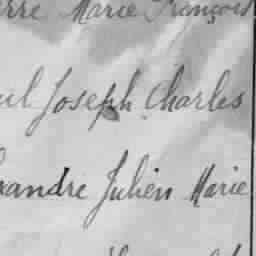 erre Marie François
ul Joseph Charles
xandre Julien Marie